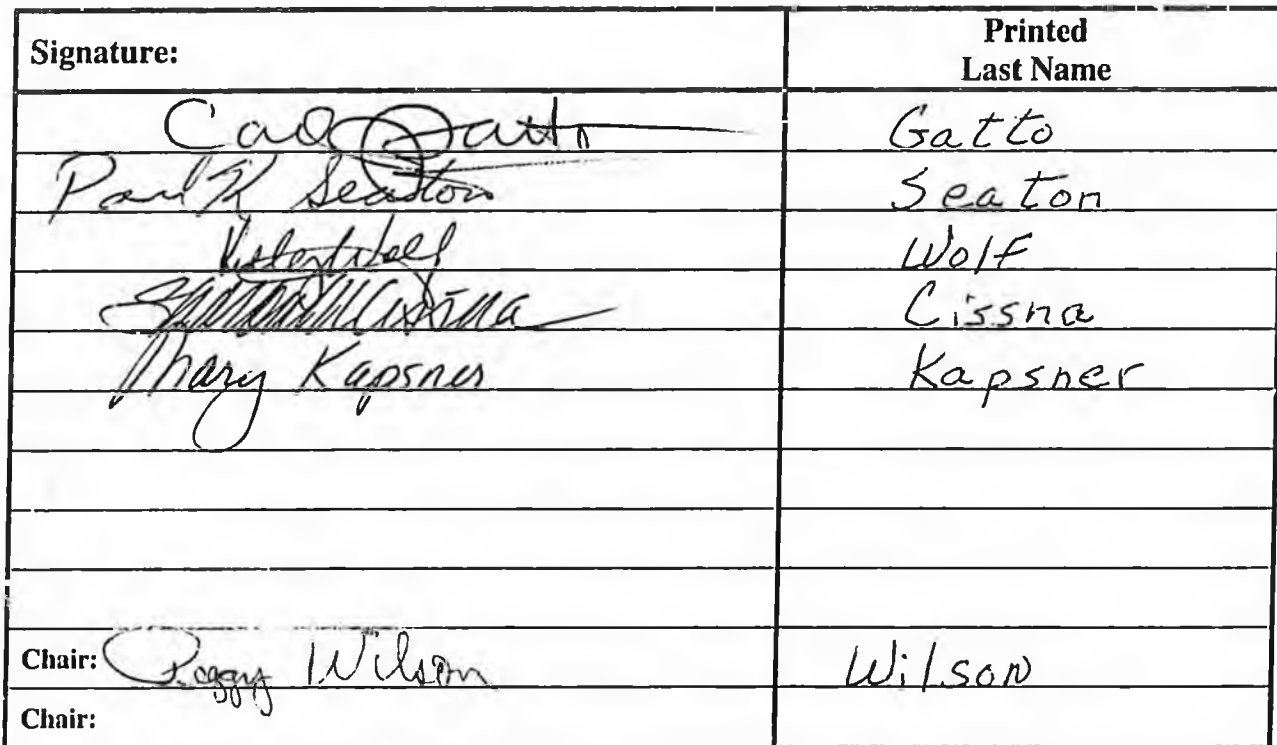 Signature: Printed
Last Name
Carl Gatto Gatto
Paul K Seaton Seaton
Wolf Wolf
Cissna Cissna
Mary Kapsner Kapsner
Chair: Peggy Wilson Wilson
Chair: